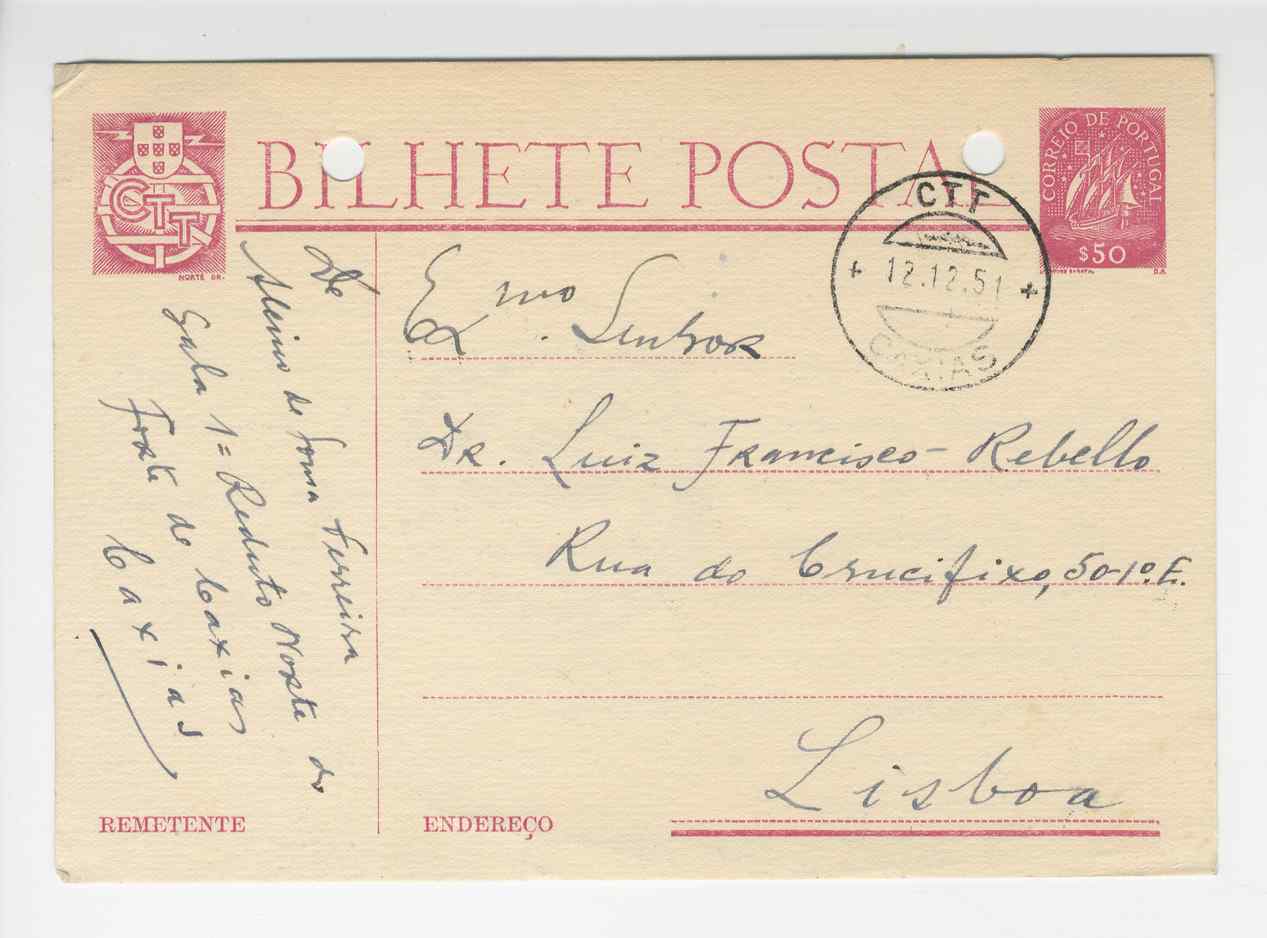 CTT
NORTE GR.
BILHETE POSTAL
CORREIO DE PORTUGAL
$50
CTT
12.12.51
CAXIAS
De
de Sousa Ferreira
Sala 1= Reduto Norte do
Forte de Caxias
Caxias
REMETENTE
Exmo. Senhor
Dr. Luiz Francisco Rebello
Rua do Crucifixo, 50-1º. E.
Lisboa
ENDEREÇO